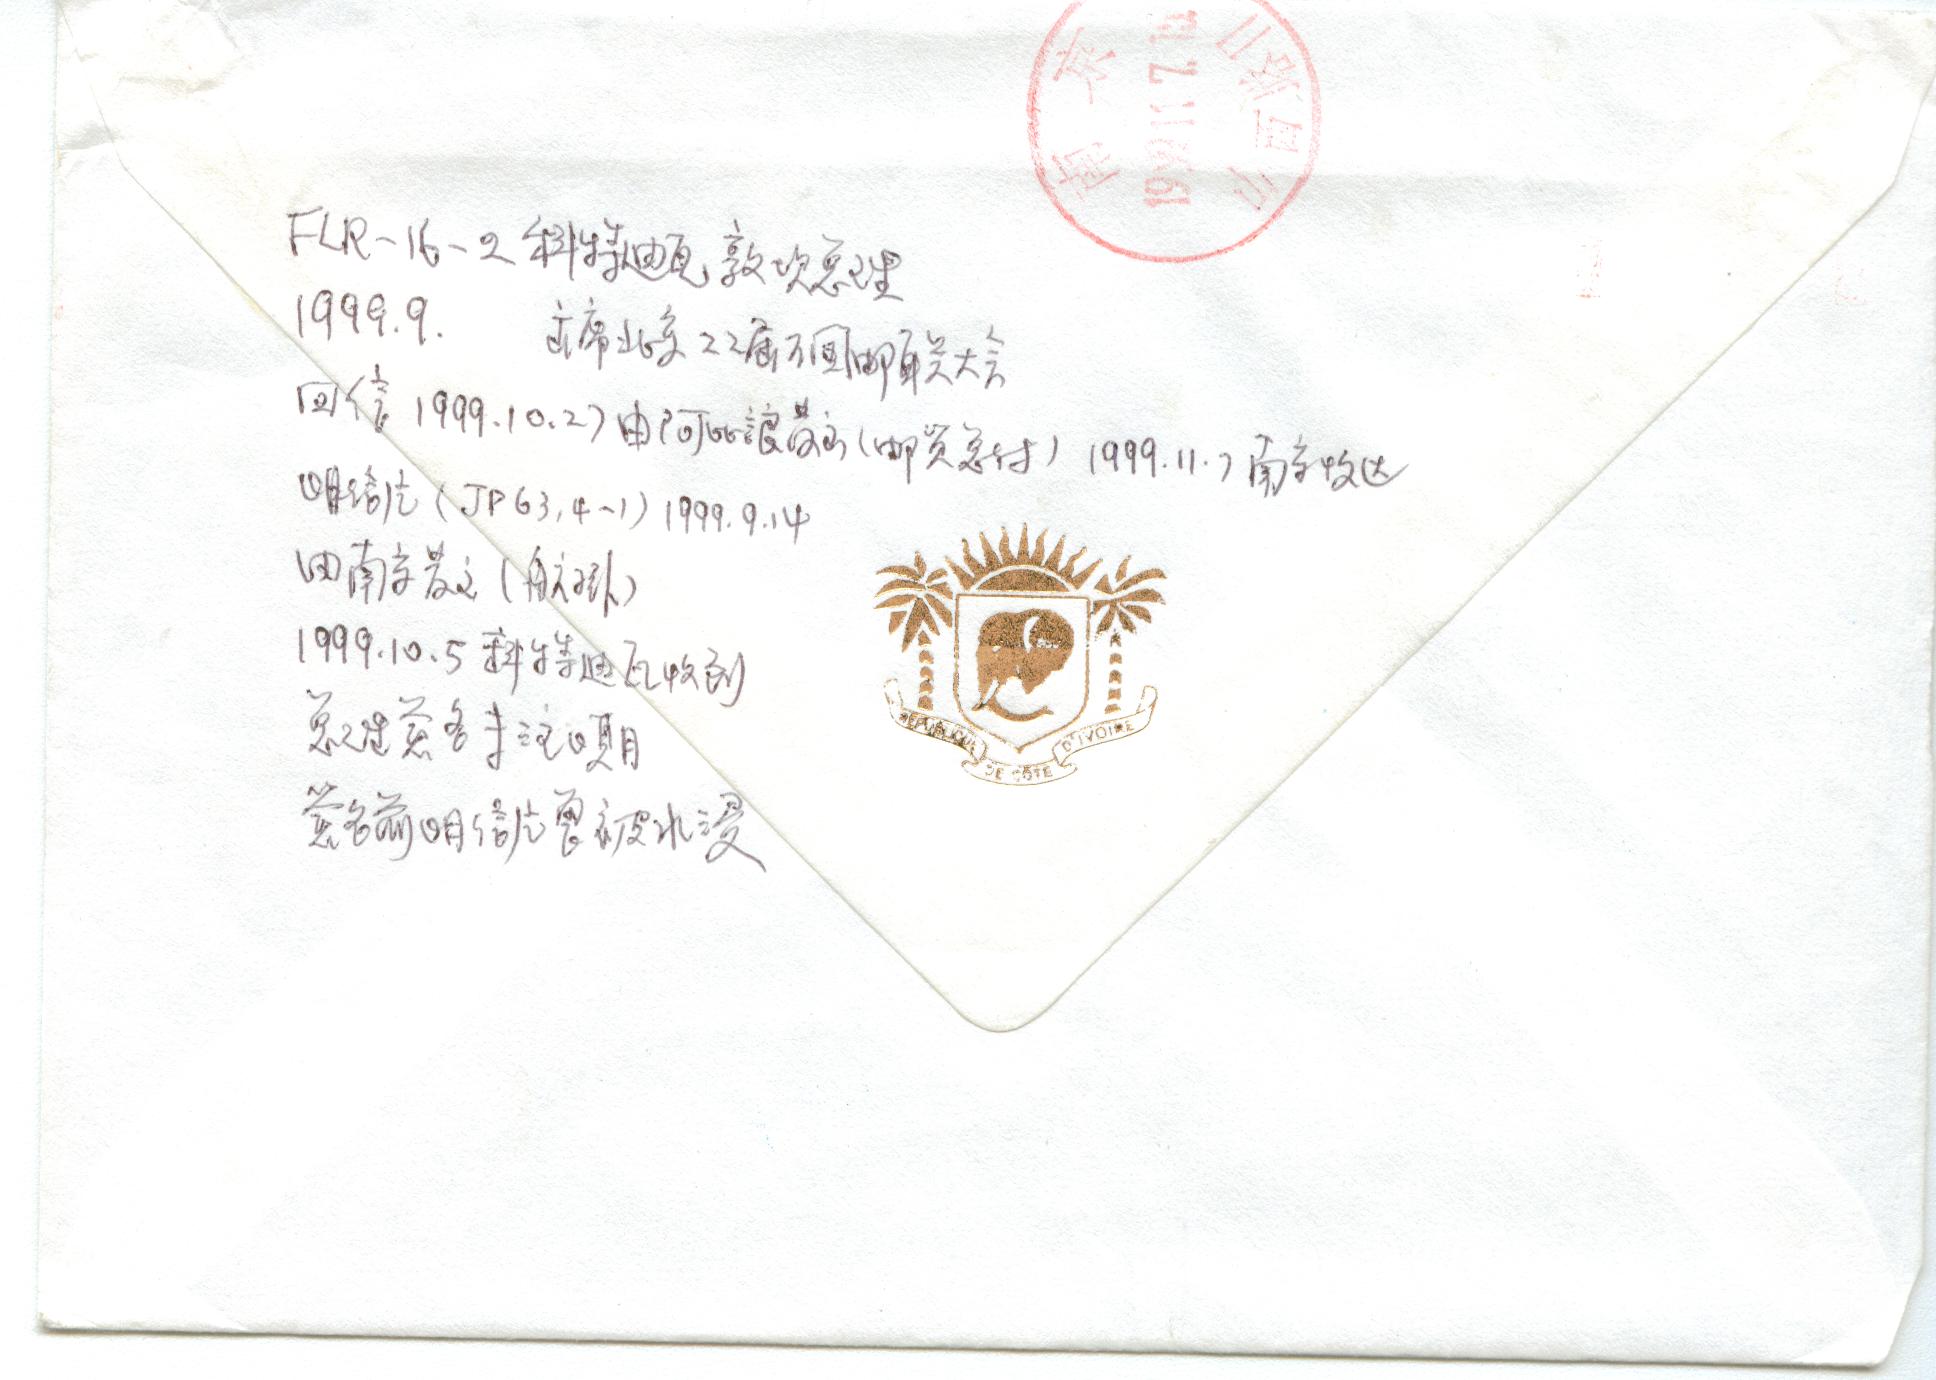 南京
1999.11.7.
山西路
FLR-16-2 科特迪瓦 敦坎总理
1999.9. 主席北京22届万国邮联大会
回信 1999.10.27 由阿比让发出(邮资总付) 1999.11.7 南京收达
明信片(JP63,4-1) 1999.9.14
由南京发出(航挂)
1999.10.5 科特迪瓦收到
总理签名并注日期
签名前明信片曾被水浸
REPUBLIQUE DE CÔTE D'IVOIRE